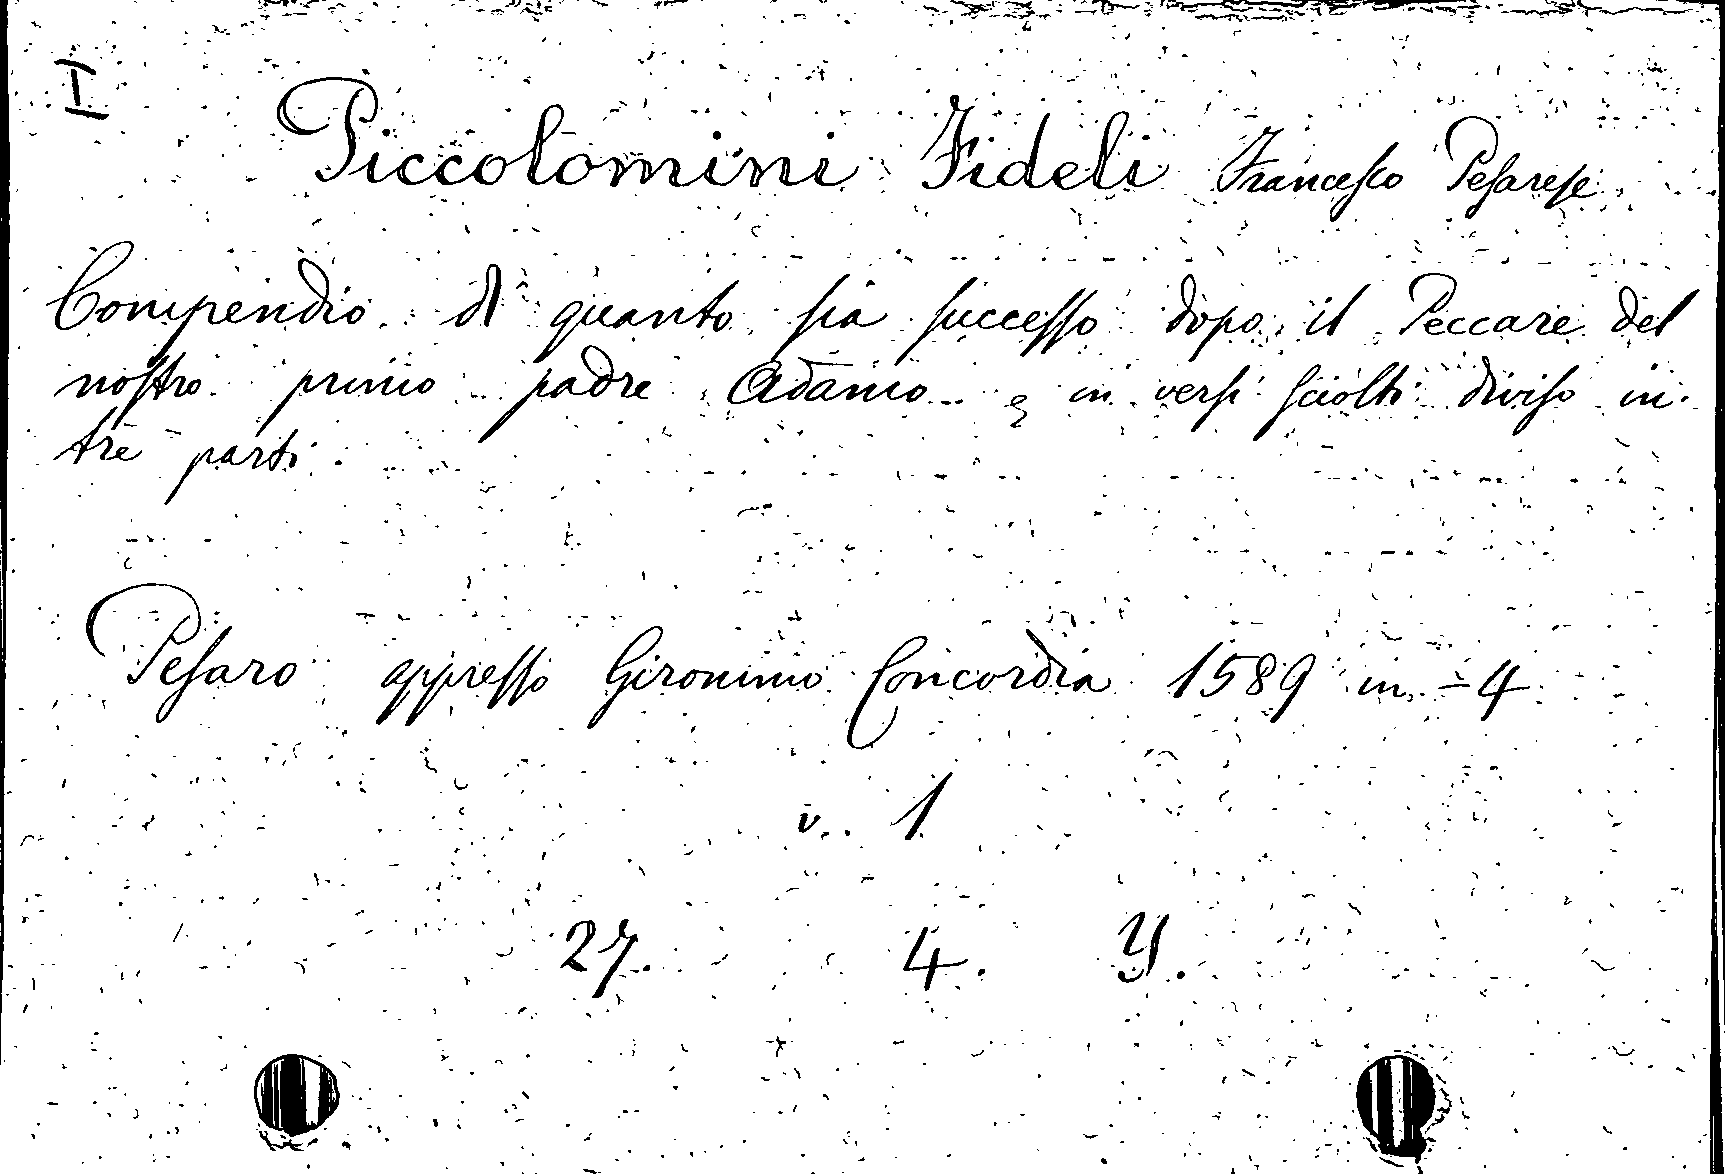 I
Piccolomini Fideli Francesco Pesarese
Compendio di quanto sia successo dopo il Peccare del
nostro primo padre Adamo e in versi sciolti diviso in
tre parti.
Pesaro appresso Gironimo Concordia 1589 in-4
v. 1
27. 4. Y.